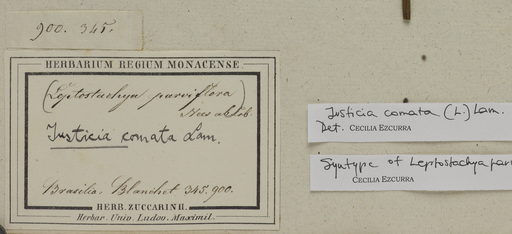 900. 345.
HERBARIUM REGIUM MONACENSE
(Leptostachya parviflora)
Nees ab Esb.
Justicia comata Lam.
Brasilia. Blanchet 345. 900.
HERB. ZUCCARINII.
Herbar. Univ. Ludov. Maximil.
Justicia comata (L.) Lam.
Det. CECILIA EZCURRA
Syntype of Leptostachya parv
CECILIA EZCURRA